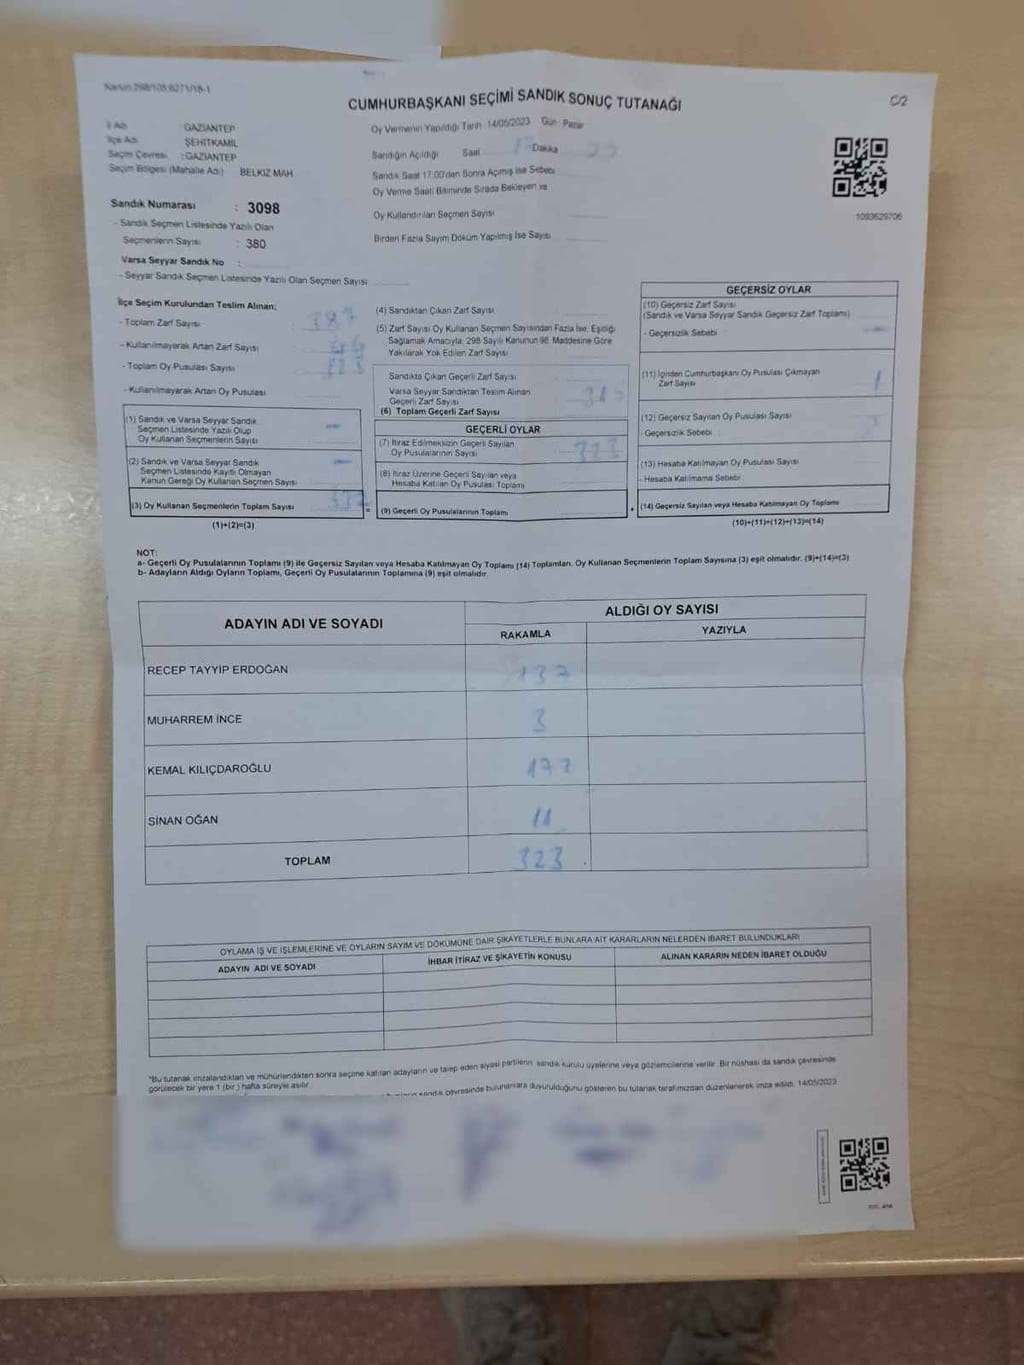 CUMHURBAŞKANI SEÇİMİ SANDIK SONUÇ TUTANAĞI
C/2
İl Adı GAZİANTEP
İlçe Adı ŞEHİTKAMİL
Seçim Çevresi : GAZİANTEP
Seçim Bölgesi (Mahalle Adı) BELKIZ MAH.
Oy Vermenin Yapıldığı Tarih 14/05/2023 Gün Pazar
Sandığın Açıldığı Saat Dakika
Sandık Saat 17:00'den Sonra Açılmış İse Sebebi
Oy Verme Saati Bitiminde Sırada Bekleyen ve
Oy Kullandırılan Seçmen Sayısı
Birden Fazla Sayım Döküm Yapılmış İse Sayısı
1093629706
Sandık Numarası : 3098
- Sandık Seçmen Listesinde Yazılı Olan
Seçmenlerin Sayısı : 380
Varsa Seyyar Sandık No :
- Seyyar Sandık Seçmen Listesinde Yazılı Olan Seçmen Sayısı
İlçe Seçim Kurulundan Teslim Alınan;
- Toplam Zarf Sayısı
- Kullanılmayarak Artan Zarf Sayısı
- Toplam Oy Pusulası Sayısı
- Kullanılmayarak Artan Oy Pusulası
(1) Sandık ve Varsa Seyyar Sandık
Seçmen Listesinde Yazılı Olup
Oy Kullanan Seçmenlerin Sayısı
(2) Sandık ve Varsa Seyyar Sandık
Seçmen Listesinde Kayıtlı Olmayan
Kanun Gereği Oy Kullanan Seçmen Sayısı
(3) Oy Kullanan Seçmenlerin Toplam Sayısı
(1)+(2)=(3)
(4) Sandıktan Çıkan Zarf Sayısı
(5) Zarf Sayısı Oy Kullanan Seçmen Sayısından Fazla İse, Eşitliği
Sağlamak Amacıyla, 298 Sayılı Kanunun 98. Maddesine Göre
Yakılarak Yok Edilen Zarf Sayısı
Sandıkta Çıkan Geçerli Zarf Sayısı
Varsa Seyyar Sandıktan Teslim Alınan
Geçerli Zarf Sayısı
(6) Toplam Geçerli Zarf Sayısı
GEÇERLİ OYLAR
(7) İtiraz Edilmeksizin Geçerli Sayılan
Oy Pusulalarının Sayısı 323
(8) İtiraz Üzerine Geçerli Sayılan veya
Hesaba Katılan Oy Pusulası Toplamı
= (9) Geçerli Oy Pusulalarının Toplamı
GEÇERSİZ OYLAR
(10) Geçersiz Zarf Sayısı
(Sandık ve Varsa Seyyar Sandık Geçersiz Zarf Toplamı)
- Geçersizlik Sebebi
(11) İçinden Cumhurbaşkanı Oy Pusulası Çıkmayan
Zarf Sayısı 1
(12) Geçersiz Sayılan Oy Pusulası Sayısı
- Geçersizlik Sebebi
(13) Hesaba Katılmayan Oy Pusulası Sayısı
- Hesaba Katılmama Sebebi
+ (14) Geçersiz Sayılan veya Hesaba Katılmayan Oy Toplamı
(10)+(11)+(12)+(13)=(14)
NOT:
a- Geçerli Oy Pusulalarının Toplamı (9) ile Geçersiz Sayılan veya Hesaba Katılmayan Oy Toplamı (14) Toplamları, Oy Kullanan Seçmenlerin Toplam Sayısına (3) eşit olmalıdır. (9)+(14)=(3)
b- Adayların Aldığı Oyların Toplamı, Geçerli Oy Pusulalarının Toplamına (9) eşit olmalıdır.
ADAYIN ADI VE SOYADI ALDIĞI OY SAYISI
RAKAMLA YAZIYLA
RECEP TAYYİP ERDOĞAN 137
MUHARREM İNCE 3
KEMAL KILIÇDAROĞLU 172
SİNAN OĞAN 11
TOPLAM 323
OYLAMA İŞ VE İŞLEMLERİNE VE OYLARIN SAYIM VE DÖKÜMÜNE DAİR ŞİKAYETLERLE BUNLARA AİT KARARLARIN NELERDEN İBARET BULUNDUKLARI
ADAYIN ADI VE SOYADI İHBAR İTİRAZ VE ŞİKAYETİN KONUSU ALINAN KARARIN NEDEN İBARET OLDUĞU
*Bu tutanak imzalandıktan ve mühürlendikten sonra seçime katılan adayların ve talep eden siyasi partilerin sandık kurulu üyelerine veya gözlemcilerine verilir. Bir nüshası da sandık çevresinde
görülecek bir yere 1 (bir) hafta süreyle asılır.
sandık çevresinde bulunanlara duyurulduğunu gösteren bu tutanak tarafımızdan düzenlenerek imza edildi. 14/05/2023